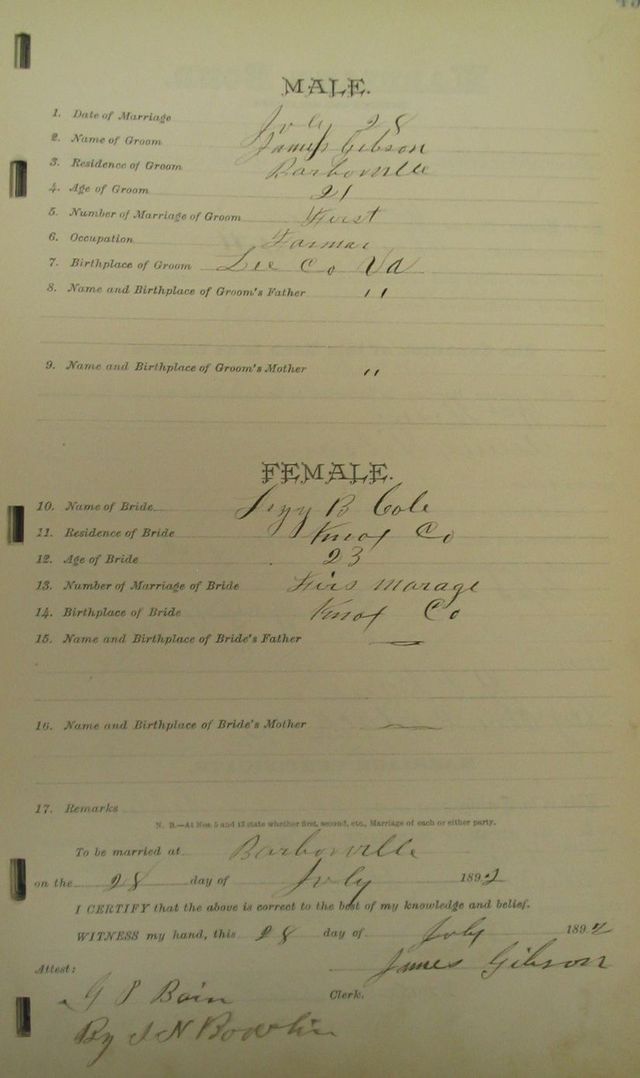 MALE.
1. Date of Marriage July 28
2. Name of Groom James Gibson
3. Residence of Groom Barborville
4. Age of Groom 21
5. Number of Marriage of Groom First
6. Occupation Farmar
7. Birthplace of Groom Lee Co Va
8. Name and Birthplace of Groom's Father "
9. Name and Birthplace of Groom's Mother "
FEMALE.
10. Name of Bride B Cole
11. Residence of Bride Knox Co
12. Age of Bride 23
13. Number of Marriage of Bride Firs marage
14. Birthplace of Bride Knox Co
15. Name and Birthplace of Bride's Father —
16. Name and Birthplace of Bride's Mother —
17. Remarks
N. B.—At Nos. 5 and 13 state whether first, second, etc., Marriage of each or either party.
To be married at Barborville
on the 28 day of July 1892
I CERTIFY that the above is correct to the best of my knowledge and belief.
WITNESS my hand, this 28 day of July 1892
James Gibson
Attest:
G P Bain Clerk.
By J N